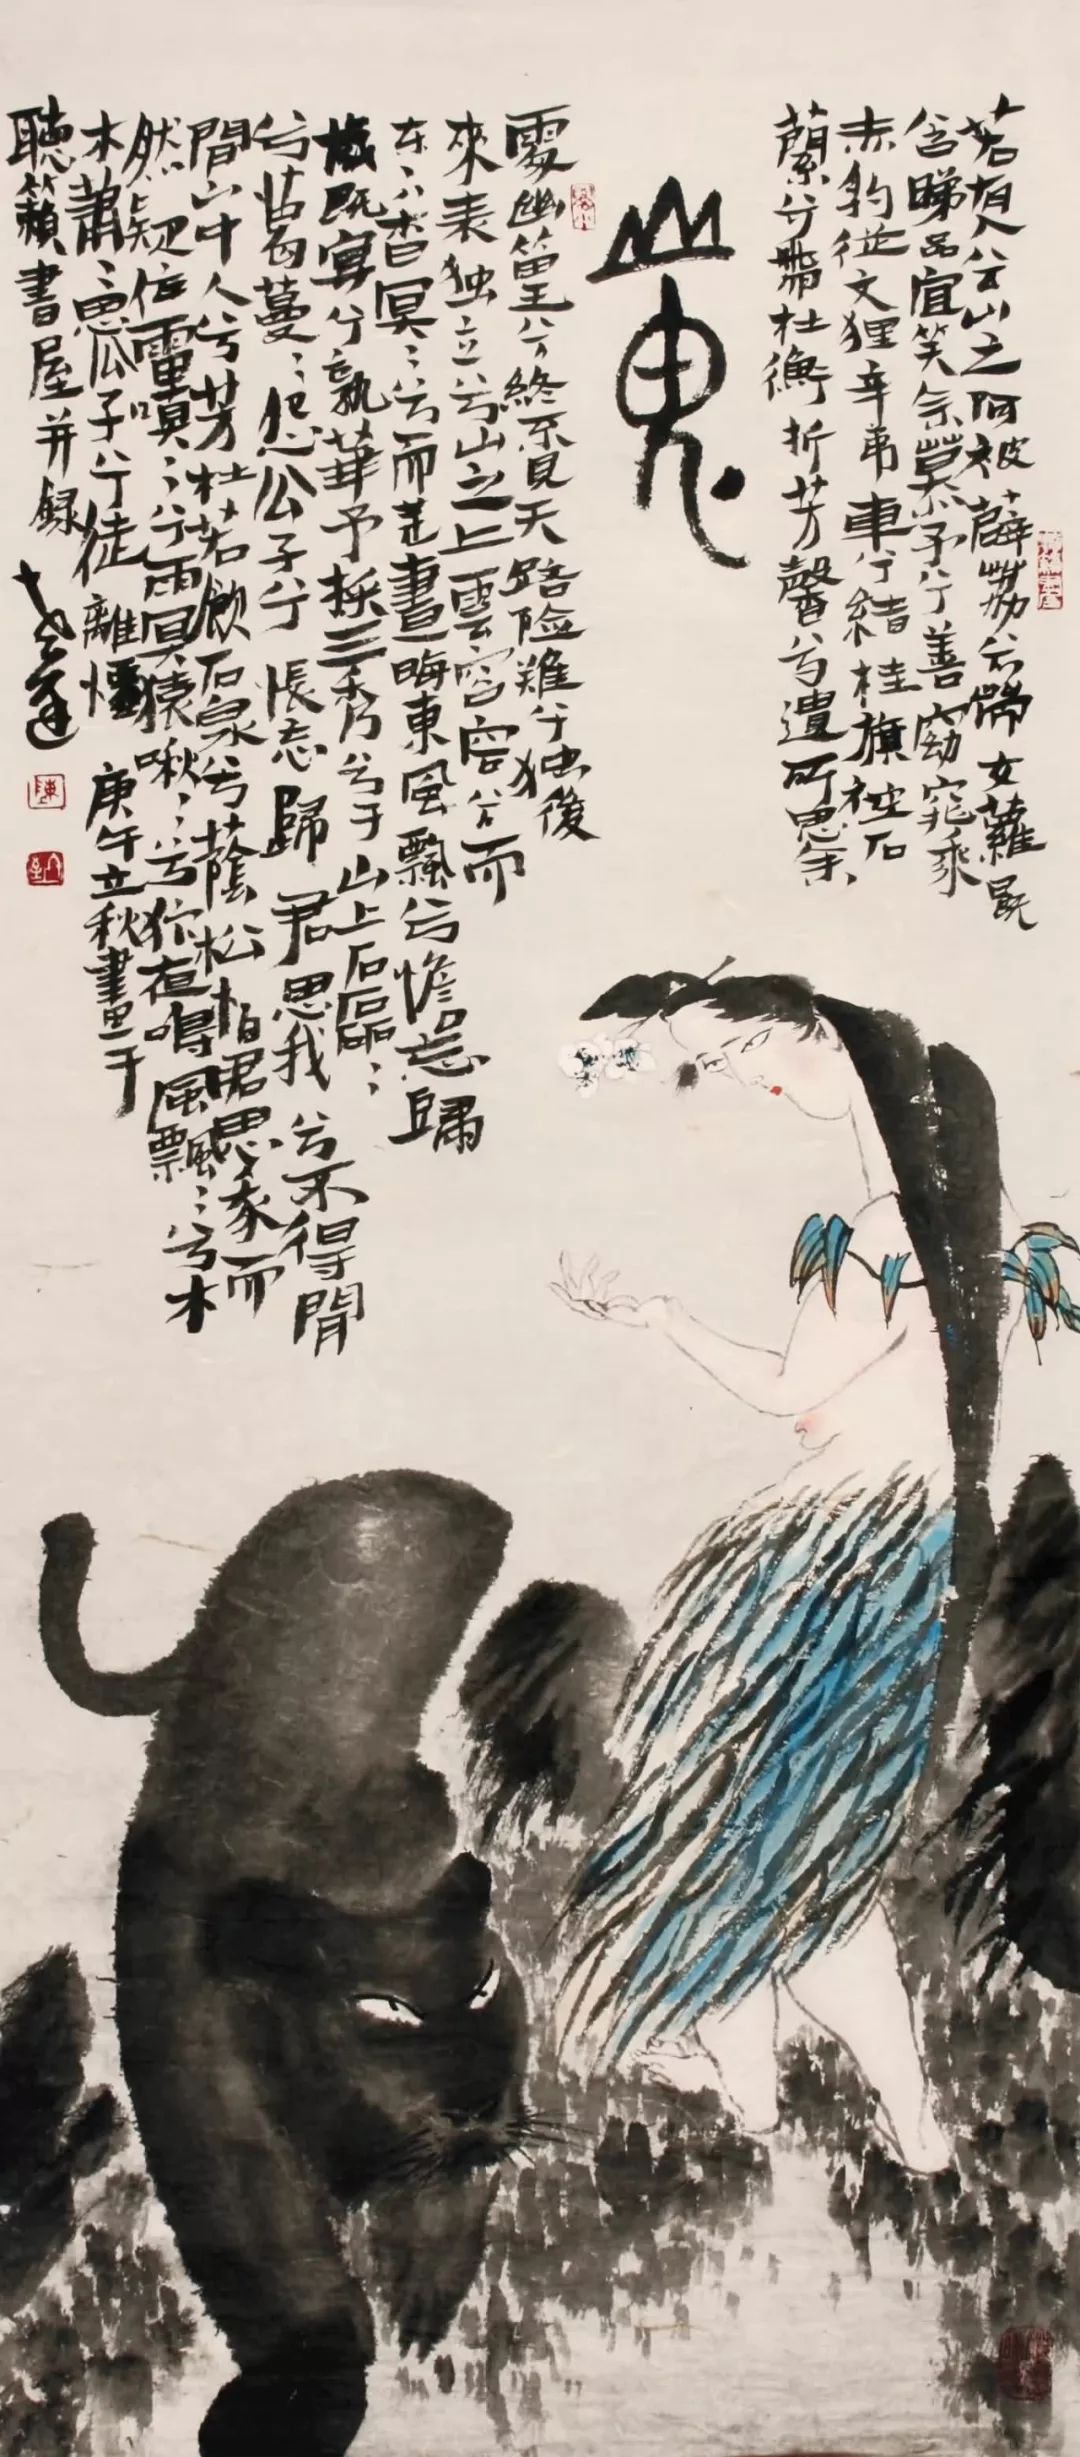 若有人兮山之阿被薜荔兮帶女蘿既
含睇兮宜笑子慕予兮善窈窕乘
赤豹從文狸辛夷車兮結桂旗被石
蘭兮帶杜衡折芳馨兮遺所思余
山鬼
處幽篁兮終不見天路险難兮独後
來表独立兮山之上雲容容兮而
在下杳冥冥兮羌晝晦東風飄兮
既宴兮孰華予採三秀兮于山上石磊磊
兮葛蔓蔓怨公子兮悵忘歸君思我兮不得閒
山中人兮芳杜若飲石泉兮蔭松柏君思我而
然疑作雷填填兮雨冥冥猿啾啾兮狖夜鳴風飄飄兮木
木蕭蕭思公子兮徒離憂 庚午立秋畫于
聽籟書屋并録
陳